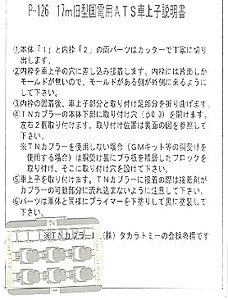 P-126 17m旧型国電用ATS車上子説明書
①本体「1」と内枠「2」の両パーツはカッターで丁寧に切り
出します。
②内枠を車上子の穴に差し込み接着します。内枠には段差しか
モールドが無いので、モールドがある側が外側に来るように
します。
③接着剤の固着後、車上子部分と取り付け足部分を折り曲げます。
④TNカプラーの本体下部に取り付け穴(φ0.3)を開けます。
左右2個取ります。取り付け位置は裏面の図を参照して
下さい。
※TNカプラーを使用しない場合(GMキット等の胴受けを
使用する場合)は胴受け裏にプラ板を積層したブロックを
取り付け、そこに取り付け穴を設けて下さい。
⑤車上子を取り付けます。TNカプラーに接着の際は接着剤が
カプラーの可動部分に流れ込まないように注意して下さい。
⑥パーツは車体と同様にプライマーを下塗りして黒に塗装して
下さい。
※TNカプラーは(株)タカラトミーの登録商標です